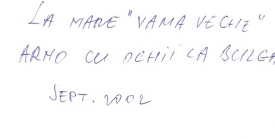 LA MARE "VAMA VECHE"
ARNO CU OCHII LA BULGA
SEPT. 2002